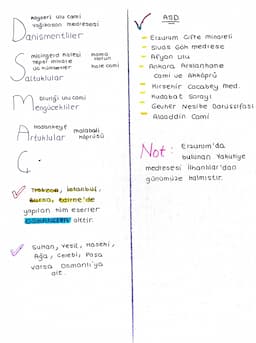 Kayseri ulu cami
Yağıbasan medresesi
Danişmentliler
Micingerd kalesi
Tepsi minare
üç kümbetler
Mama
Hatun
kale cami
Saltuklular
Divriği ulu cami
Mengücekliler
Hasankeyf
malabadi
köprüsü
Artuklular
Ç
Trabzon, İstanbul,
Bursa, Edirne'de
yapılan tüm eserler
OSMANLIYA aittir.
Sultan, Yeşil, Haseki,
Ağa, Çelebi, Paşa
varsa Osmanlı'ya
ait.
ASD
- Erzurum Çifte minareli
- Sivas Gök medrese
- Afyon Ulu
- Ankara Arslanhane
Cami ve Akköprü
- Kırşehir Cacabey med.
- Kubabat Sarayı
- Gevher Nesibe Darüşşifası
- Alaaddin Cami
Not: Erzurum'da
bulunan Yakutiye
medresesi İlhanlılar'dan
günümüze kalmıştır.